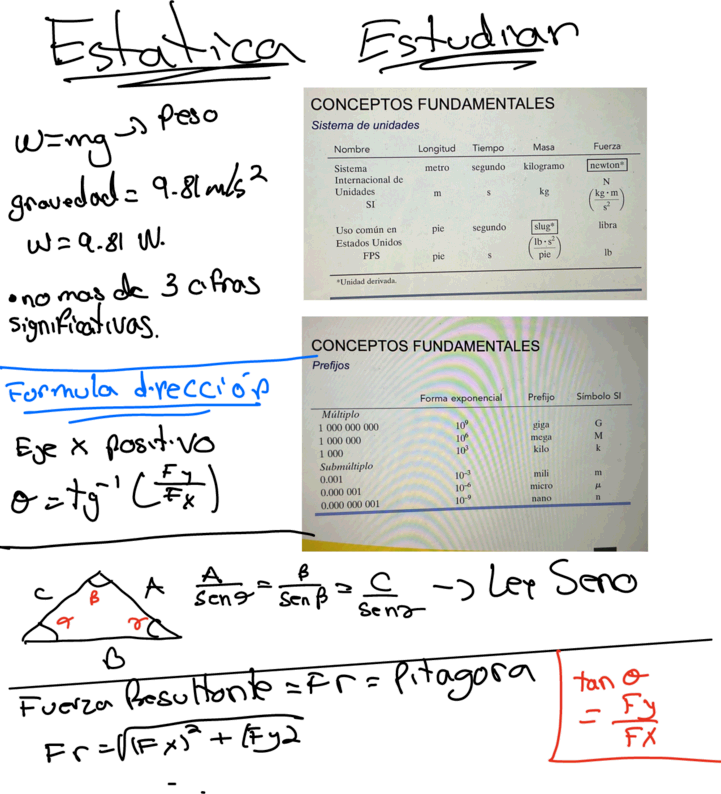 Estatica Estudian
w=mg → Peso
gravedad = 9.81 m/s²
w=9.81 N.
•no mas de 3 cifras
significativas.
CONCEPTOS FUNDAMENTALES
Sistema de unidades
Nombre Longitud Tiempo Masa Fuerza
Sistema metro segundo kilogramo newton*
Internacional de N
Unidades m s kg (kg·m/s²)
SI
Uso común en pie segundo slug* libra
Estados Unidos (lb·s²/pie)
FPS pie s lb
*Unidad derivada.
Formula dirección
Eje x positivo
θ = tg⁻¹ (Fy/Fx)
CONCEPTOS FUNDAMENTALES
Prefijos
Forma exponencial Prefijo Símbolo SI
Múltiplo
1 000 000 000 10⁹ giga G
1 000 000 10⁶ mega M
1 000 10³ kilo k
Submúltiplo
0.001 10⁻³ mili m
0.000 001 10⁻⁶ micro μ
0.000 000 001 10⁻⁹ nano n
C β A
α γ
B
A/Sen α = B/Sen β = C/Sen γ → Ley Seno
Fuerza Resultante = Fr = Pitagora
Fr = √(Fx)² + (Fy2
tan θ
= Fy/Fx